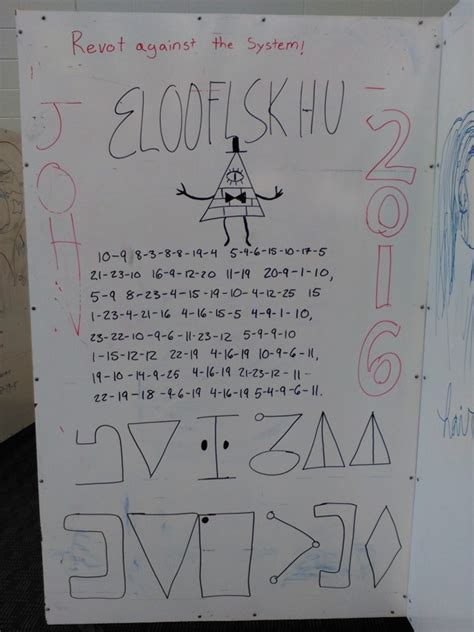 Revot against the System!
JOHN
ELOOFLSKHU
-2016
10-9 8-3-8-8-19-4 5-4-6-15-10-17-5
21-23-10 16-9-12-20 11-19 20-9-1-10,
5-9 8-23-4-15-19-10-4-12-25 15
1-23-4-21-16 4-16-15-5 4-9-1-10,
23-22-10-9-6-11-23-12 5-9-9-10
1-15-12-12 22-19 4-16-19 10-9-6-11,
19-10-14-9-25 4-16-19 21-23-12-11-
22-19-18-9-6-19 4-16-19 5-4-9-6-11.